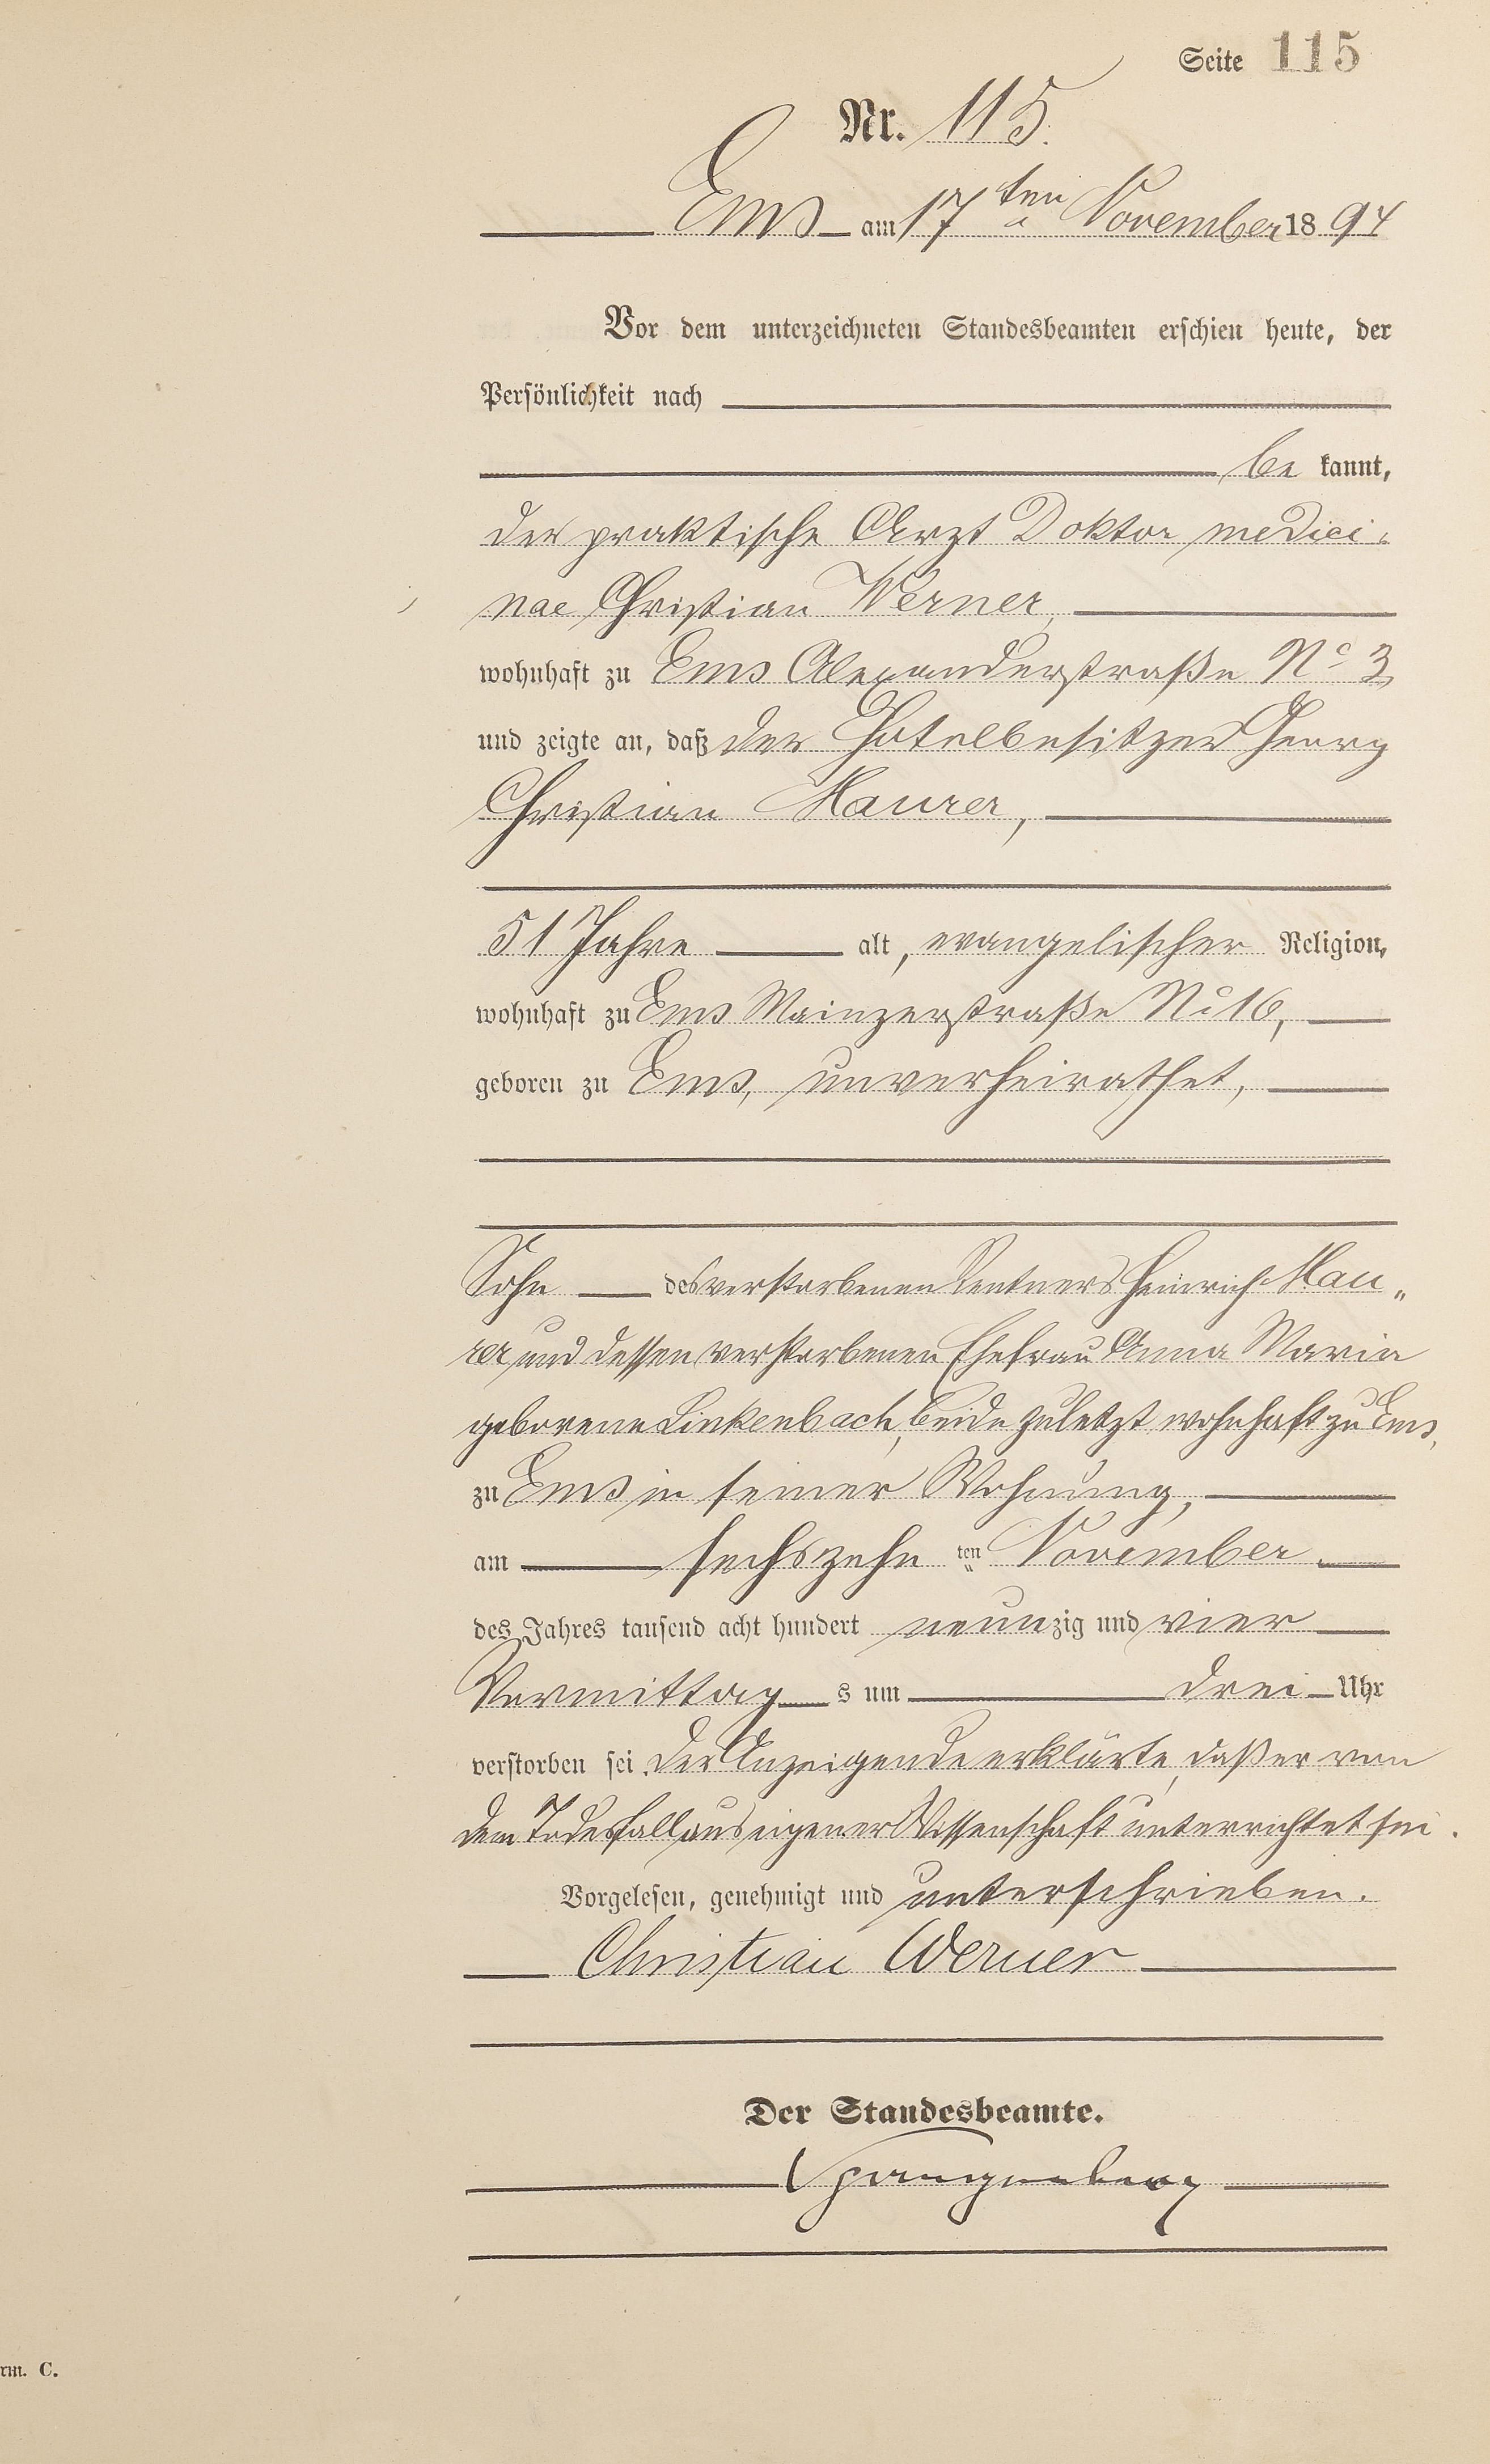 Seite 115
Nr. 115.
Ems am 17ten November 1894
Vor dem unterzeichneten Standesbeamten erschien heute, der
Persönlichkeit nach
be kannt,
der praktische Arzt Doktor medici-
nae Christian Werner,
wohnhaft zu Ems Alexanderstraße No 3
und zeigte an, daß der Hotelbesitzer Georg
Christian Maurer,
51 Jahre alt, evangelischer Religion,
wohnhaft zu Ems Mainzerstraße No 16,
geboren zu Ems, unverheirathet,
Sohn des verstorbenen Rentners Heinrich Mau„
rer und dessen verstorbenen Ehefrau Anna Maria
geborene Linkenbach, beide zuletzt wohnhaft zu Ems,
zu Ems in seiner Wohnung,
am sechszehn ten November
des Jahres tausend acht hundert neunzig und vier
Vormittag s um drei Uhr
verstorben sei. Der Anzeigende erklärte, daß er von
dem Todesfall aus eigener Wissenschaft unterrichtet sei.
Vorgelesen, genehmigt und unterschrieben.
Christian Werner
Der Standesbeamte.
Spangenberg
rm. C.